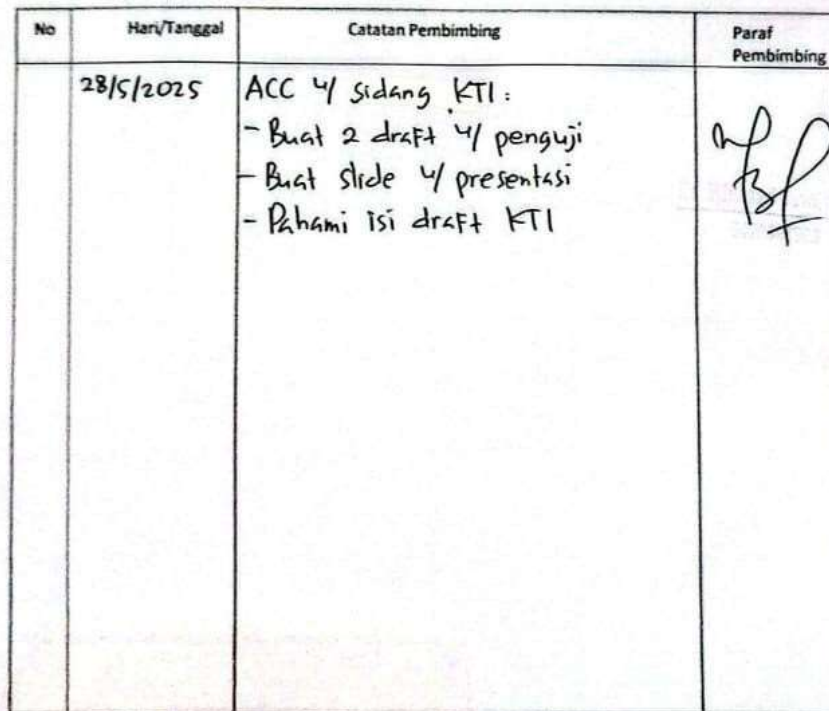 No Hari/Tanggal Catatan Pembimbing Paraf
Pembimbing
28/5/2025 ACC u/ sidang KTI :
- Buat 2 draft u/ penguji
- Buat slide u/ presentasi
- Pahami isi draft KTI